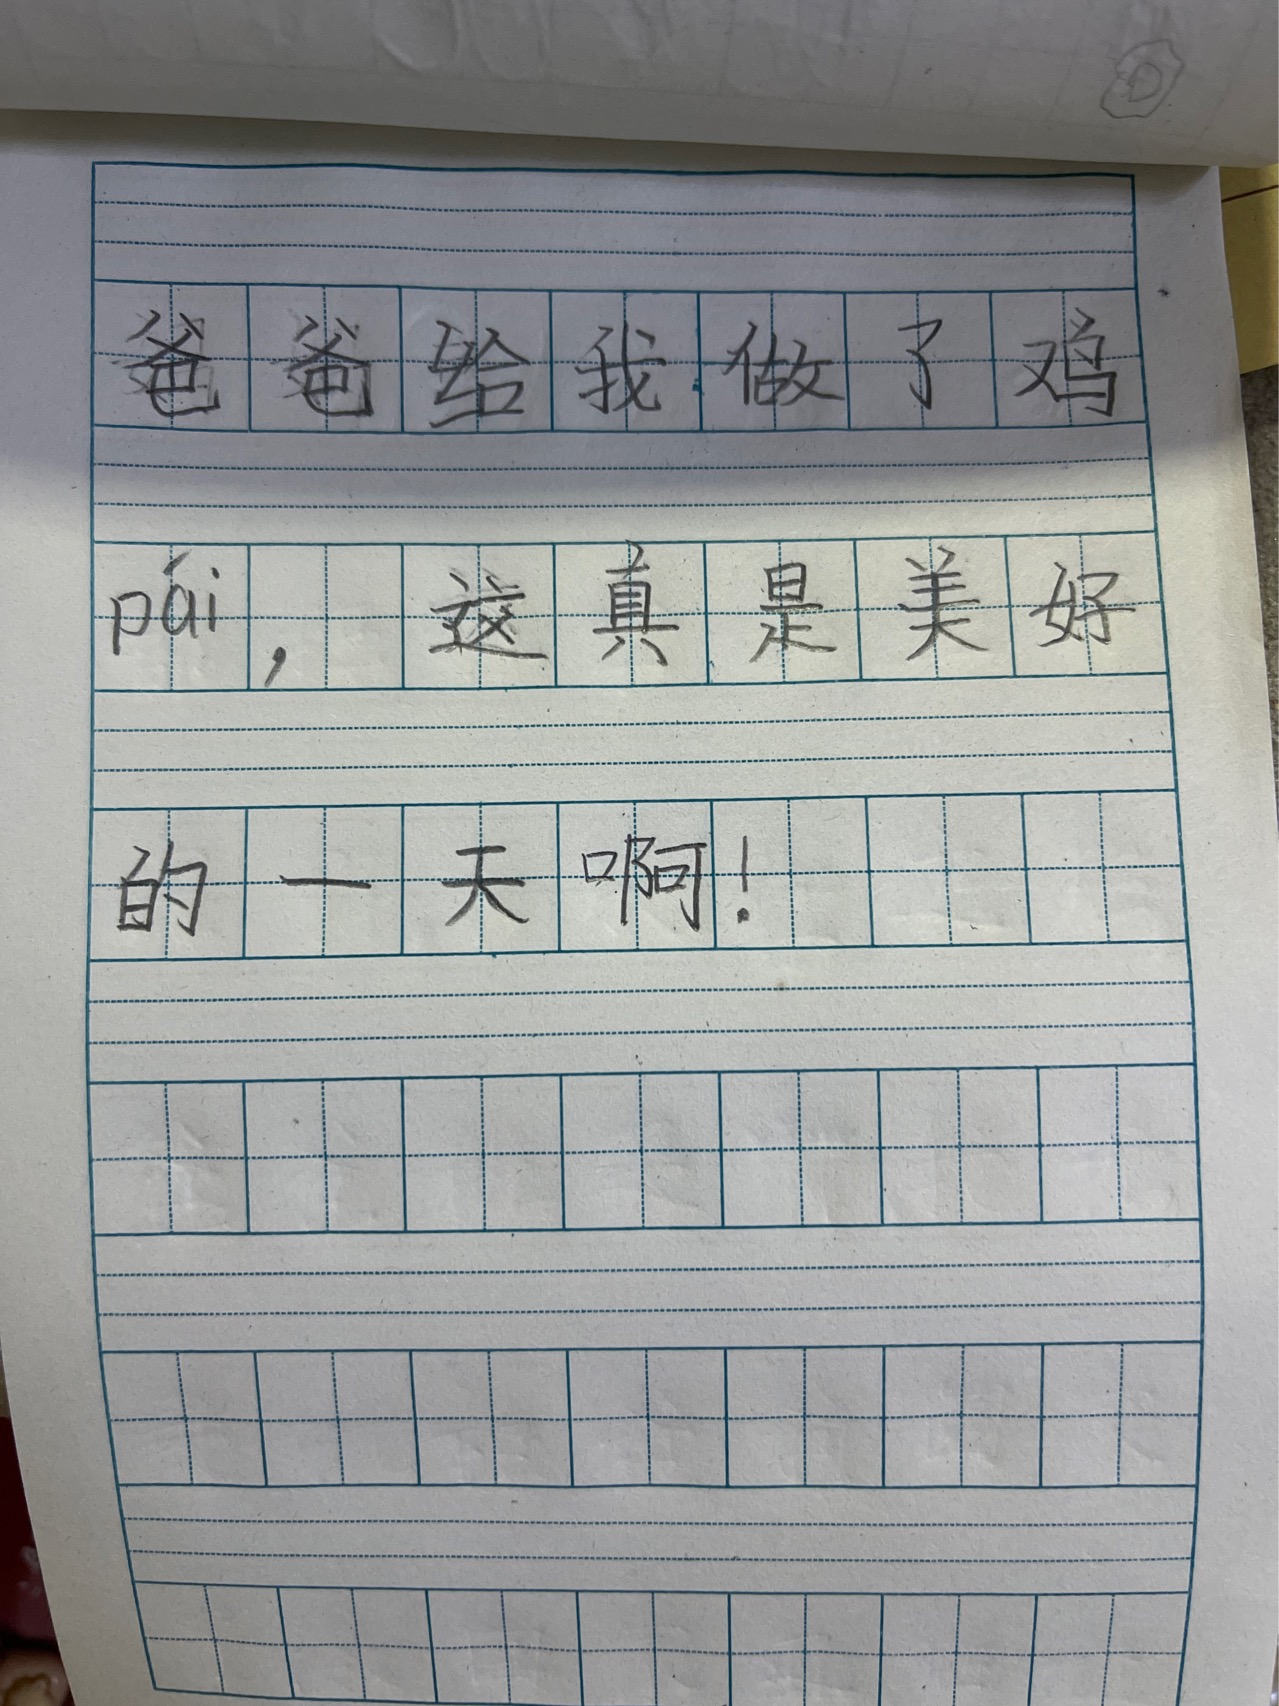 爸爸给我做了鸡
pái，这真是美好
的一天啊！